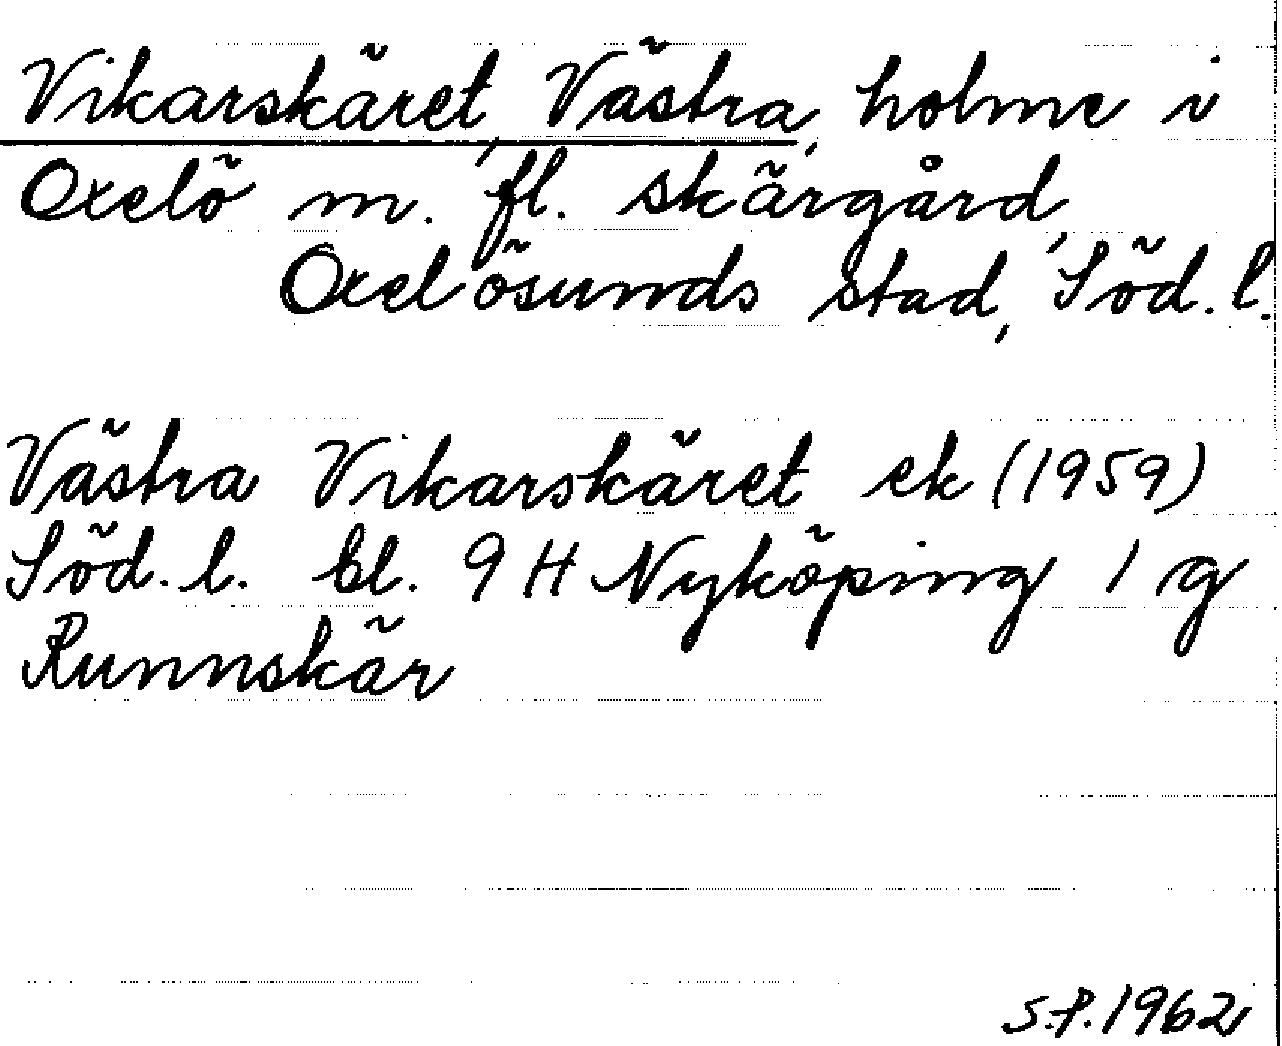 Vikarskäret, Västra, holme i
Oxelö m. fl. skärgård,
Oxelösunds stad, Söd. l.
Västra Vikarskäret ek (1959)
Söd. l. bl. 9 H Nyköping 1 g
Runnskär
S.P. 1962